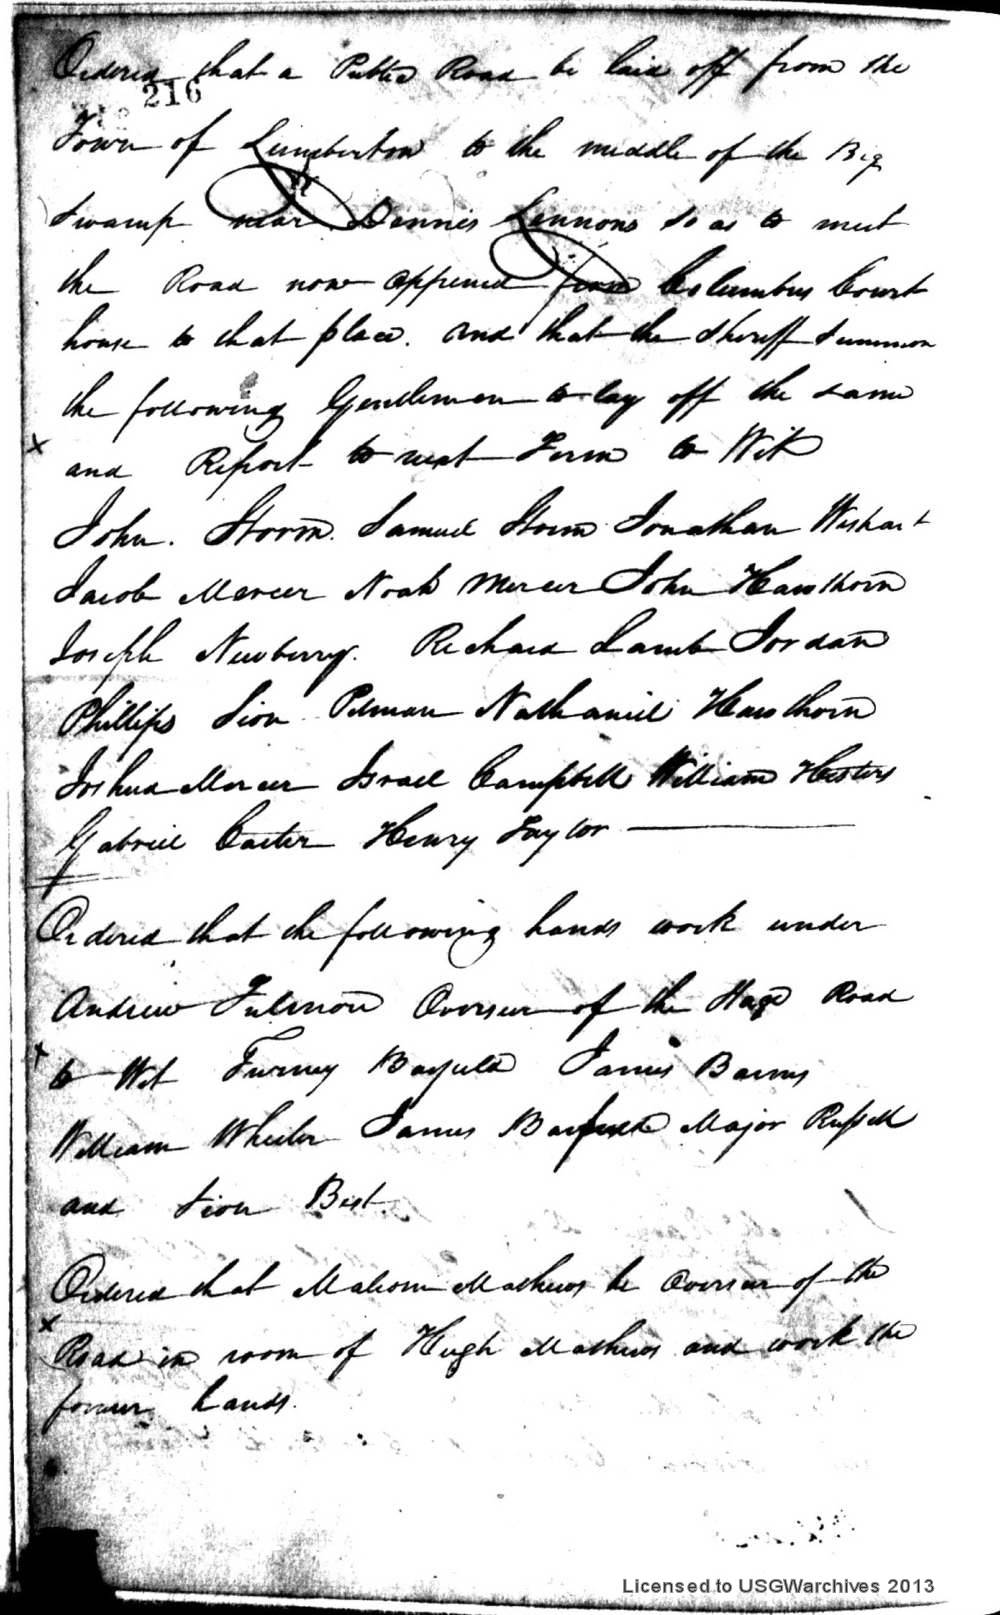 Ordered that a Public Road be laid off from the
216
Town of Lumberton to the middle of the Big
Swamp near Dennis Lennons so as to meet
the Road now oppened from Columbus Court
house to that place. and that the Sheriff Summon
the following Gentlemen to lay off the same
x and Report to next Term to Wit
John. Storm. Samuel Storm Jonathan Wishart
Jacob Mercer Noah Mercer John Hawthorn
Joseph Newberry. Richard Lamb Jordan
Phillips Sion Pitman Nathaniel Hawthorn
Joshua Mercer Israel Campbell William Hesters
Gabriel Carter Henry Taylor
Ordered that the following hands work under
Andrew Fulmore Overseer of the Stage Road
x to Wit Furney James Barns
William Wheeler James Major Russell
and Sion Best.
Ordered that Malcom Mathews be Overseer of the
x Road in room of Hugh Mathews and work the
former hands.
Licensed to USGWarchives 2013